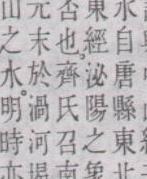 水自唐縣東北
東經泌陽之象
否也。齊氏召南
元末於渦河堨
山之水。明時亦